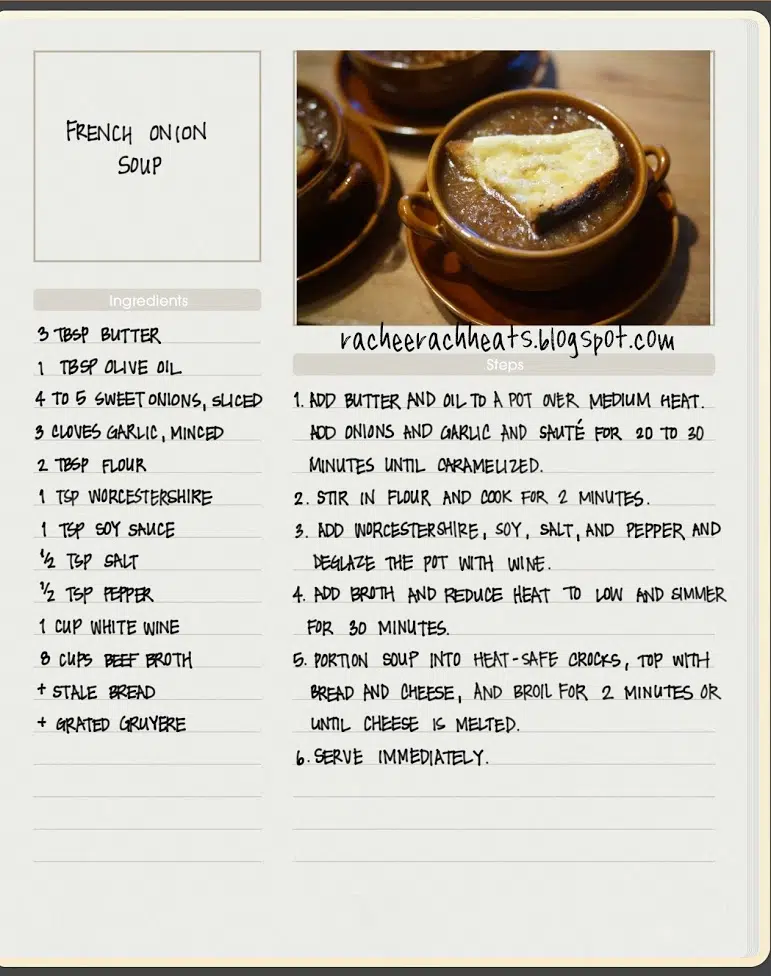 FRENCH ONION
SOUP
racheerachheats.blogspot.com
Ingredients
3 TBSP BUTTER
1 TBSP OLIVE OIL
4 TO 5 SWEET ONIONS, SLICED
3 CLOVES GARLIC, MINCED
2 TBSP FLOUR
1 TSP WORCESTERSHIRE
1 TSP SOY SAUCE
½ TSP SALT
½ TSP PEPPER
1 CUP WHITE WINE
8 CUPS BEEF BROTH
+ STALE BREAD
+ GRATED GRUYERE
Steps
1. ADD BUTTER AND OIL TO A POT OVER MEDIUM HEAT.
ADD ONIONS AND GARLIC AND SAUTÉ FOR 20 TO 30
MINUTES UNTIL CARAMELIZED.
2. STIR IN FLOUR AND COOK FOR 2 MINUTES.
3. ADD WORCESTERSHIRE, SOY, SALT, AND PEPPER AND
DEGLAZE THE POT WITH WINE.
4. ADD BROTH AND REDUCE HEAT TO LOW AND SIMMER
FOR 30 MINUTES.
5. PORTION SOUP INTO HEAT-SAFE CROCKS, TOP WITH
BREAD AND CHEESE, AND BROIL FOR 2 MINUTES OR
UNTIL CHEESE IS MELTED.
6. SERVE IMMEDIATELY.